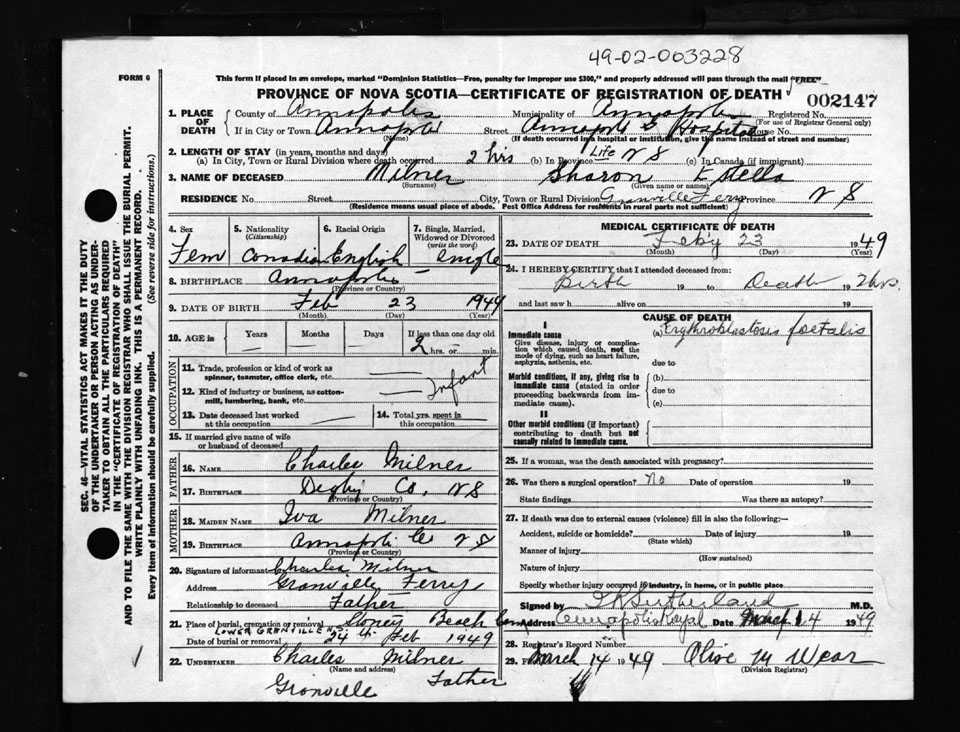 49-02-003228
FORM 6
This form if placed in an envelope, marked "Dominion Statistics—Free, penalty for improper use $300," and properly addressed will pass through the mail "FREE"
PROVINCE OF NOVA SCOTIA—CERTIFICATE OF REGISTRATION OF DEATH 002147
1. PLACE OF DEATH { County of Annapolis Municipality of Annapolis Registered No.
(For use of Registrar General only)
If in City or Town Annapolis Street Annapolis G Hospital House No.
(Name) (If death occurred in a hospital or institution, give the name instead of street and number)
2. LENGTH OF STAY (in years, months and days)
(a) In City, Town or Rural Division where death occurred 2 hrs (b) In Province Life NS (c) In Canada (if immigrant)
3. NAME OF DECEASED Milner Sharon Estella
(Surname) (Given name or names)
RESIDENCE No. Street City, Town or Rural Division Granville Ferry Province NS
(Residence means usual place of abode. Post Office Address for residents in rural parts not sufficient)
4. Sex Fem
5. Nationality (Citizenship) Canadian
6. Racial Origin English
7. Single, Married, Widowed or Divorced (write the word) single
8. BIRTHPLACE Annapolis
(Province or Country)
9. DATE OF BIRTH Feb 23 1949
(Month) (Day) (Year)
10. AGE is Years Months Days If less than one day old
2 hrs. or min.
OCCUPATION
11. Trade, profession or kind of work as spinner, teamster, office clerk, etc.
12. Kind of industry or business, as cotton-mill, lumbering, bank, etc. Infant
13. Date deceased last worked at this occupation
14. Total yrs. spent in this occupation
15. If married give name of wife or husband of deceased
FATHER
16. NAME Charles Milner
17. BIRTHPLACE Digby Co. NS
(Province or Country)
MOTHER
18. MAIDEN NAME Iva Milner
19. BIRTHPLACE Annapolis Co NS
(Province or Country)
20. Signature of informant Charles Milner
Address Granville Ferry
Relationship to deceased Father
21. Place of burial, cremation or removal Stoney Beach Cem
LOWER GRANVILLE NS
Date of burial or removal 24th Feb 1949
22. UNDERTAKER Charles Milner
(Name and address)
Granville Father
MEDICAL CERTIFICATE OF DEATH
23. DATE OF DEATH Feby 23 1949
(Month) (Day) (Year)
24. I HEREBY CERTIFY that I attended deceased from:
Birth 19 to Death 19 2 hrs.
and last saw h alive on 19
CAUSE OF DEATH
I
Immediate cause (a) Erythroblastosis foetalis
Give disease, injury or complication which caused death, not the mode of dying, such as heart failure, asphyxia, asthenia, etc.
due to
Morbid conditions, if any, giving rise to immediate cause (stated in order proceeding backwards from immediate cause).
(b)
due to
(c)
II
Other morbid conditions (if important) contributing to death but not causally related to immediate cause.
25. If a woman, was the death associated with pregnancy?
26. Was there a surgical operation? no Date of operation 19
State findings Was there an autopsy?
27. If death was due to external causes (violence) fill in also the following:—
Accident, suicide or homicide? Date of injury 19
(State which)
Manner of injury
(How sustained)
Nature of injury
Specify whether injury occurred in industry, in home, or in public place
Signed by Sutherland M.D.
Address Annapolis Royal Date March 14 1949
28. Registrar's Record Number
29. Filed March 14 1949 Olive M Wear
(Division Registrar)
SEC. 46—VITAL STATISTICS ACT MAKES IT THE DUTY
OF THE UNDERTAKER OR PERSON ACTING AS UNDER-
TAKER TO OBTAIN ALL THE PARTICULARS REQUIRED
IN THE "CERTIFICATE OF REGISTRATION OF DEATH"
AND TO FILE THE SAME WITH THE DIVISION REGISTRAR WHO SHALL ISSUE THE BURIAL PERMIT.
WRITE PLAINLY WITH UNFADING INK. THIS IS A PERMANENT RECORD.
Every item of information should be carefully supplied. (See reverse side for instructions.)